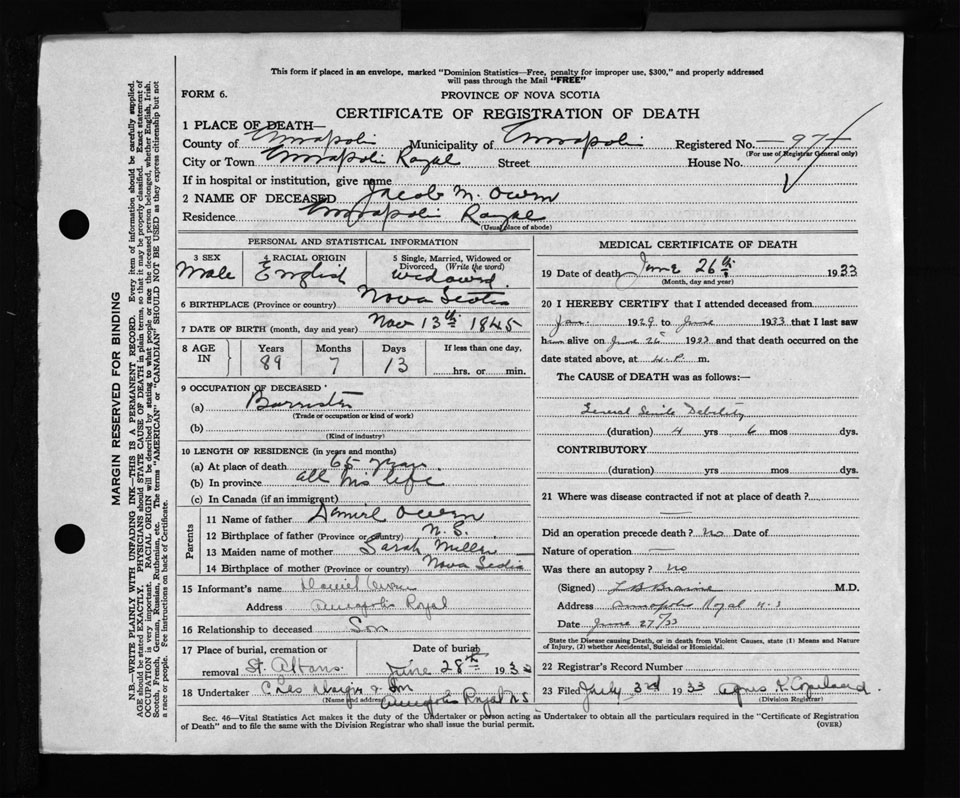 This form if placed in an envelope, marked "Dominion Statistics—Free, penalty for improper use, $300," and properly addressed
will pass through the Mail "FREE"
FORM 6. PROVINCE OF NOVA SCOTIA
CERTIFICATE OF REGISTRATION OF DEATH
1 PLACE OF DEATH—
County of Annapolis Municipality of Annapolis Registered No. 97
(For use of Registrar General only)
City or Town Annapolis Royal Street House No.
If in hospital or institution, give name
2 NAME OF DECEASED Jacob M. Owen
Residence Annapolis Royal
(Usual place of abode)
PERSONAL AND STATISTICAL INFORMATION
3 SEX 4 RACIAL ORIGIN 5 Single, Married, Widowed or
Divorced (Write the word)
Male English Widowed
6 BIRTHPLACE (Province or country) Nova Scotia
7 DATE OF BIRTH (month, day and year) Nov 13th 1845
8 AGE IN Years Months Days If less than one day,
89 7 13 hrs. or min.
9 OCCUPATION OF DECEASED
(a) Barrister
(Trade or occupation or kind of work)
(b)
(Kind of industry)
10 LENGTH OF RESIDENCE (in years and months)
(a) At place of death 65 years
(b) In province all his life
(c) In Canada (if an immigrant)
Parents
11 Name of father Daniel Owen
12 Birthplace of father (Province or country) N. S.
13 Maiden name of mother Sarah Miller
14 Birthplace of mother (Province or country) Nova Scotia
15 Informant's name Daniel Owen
Address Annapolis Royal
16 Relationship to deceased Son
17 Place of burial, cremation or Date of burial
removal St. Albans June 28th 193
18 Undertaker Chas & Son
(Name and address) Annapolis Royal NS
MEDICAL CERTIFICATE OF DEATH
19 Date of death June 26th 1933
(Month, day and year)
20 I HEREBY CERTIFY that I attended deceased from
Jan. 1929 to June 1933 that I last saw
him alive on June 26 1933 and that death occurred on the
date stated above, at 4. P. m.
The CAUSE OF DEATH was as follows:—
General Senile Debility
(duration) 4 yrs 6 mos dys.
CONTRIBUTORY
(duration) yrs mos dys.
21 Where was disease contracted if not at place of death?
Did an operation precede death? No Date of
Nature of operation —
Was there an autopsy? No
(Signed) L B Braine M.D.
Address Annapolis Royal N.S
Date June 27/33
State the Disease causing Death, or in death from Violent Causes, state (1) Means and Nature
of Injury, (2) whether Accidental, Suicidal or Homicidal.
22 Registrar's Record Number
23 Filed July 3rd 1933 Agnes K. Copeland.
(Division Registrar)
Sec. 46—Vital Statistics Act makes it the duty of the Undertaker or person acting as Undertaker to obtain all the particulars required in the "Certificate of Registration
of Death" and to file the same with the Division Registrar who shall issue the burial permit. (OVER)
MARGIN RESERVED FOR BINDING
N.B.—WRITE PLAINLY WITH UNFADING INK—THIS IS A PERMANENT RECORD. Every item of information should be carefully supplied.
AGE should be stated EXACTLY. PHYSICIANS should STATE CAUSE OF DEATH in plain terms, so that it may be properly classified. Exact statement of
OCCUPATION is very important. RACIAL ORIGIN will be described by stating to what people or race the deceased person belonged, whether English, Irish,
Scotch, French, German, Russian, Ruthenian, etc. The terms "AMERICAN" or "CANADIAN" SHOULD NOT BE USED as they express citizenship but not
a race or people. See instructions on back of Certificate.